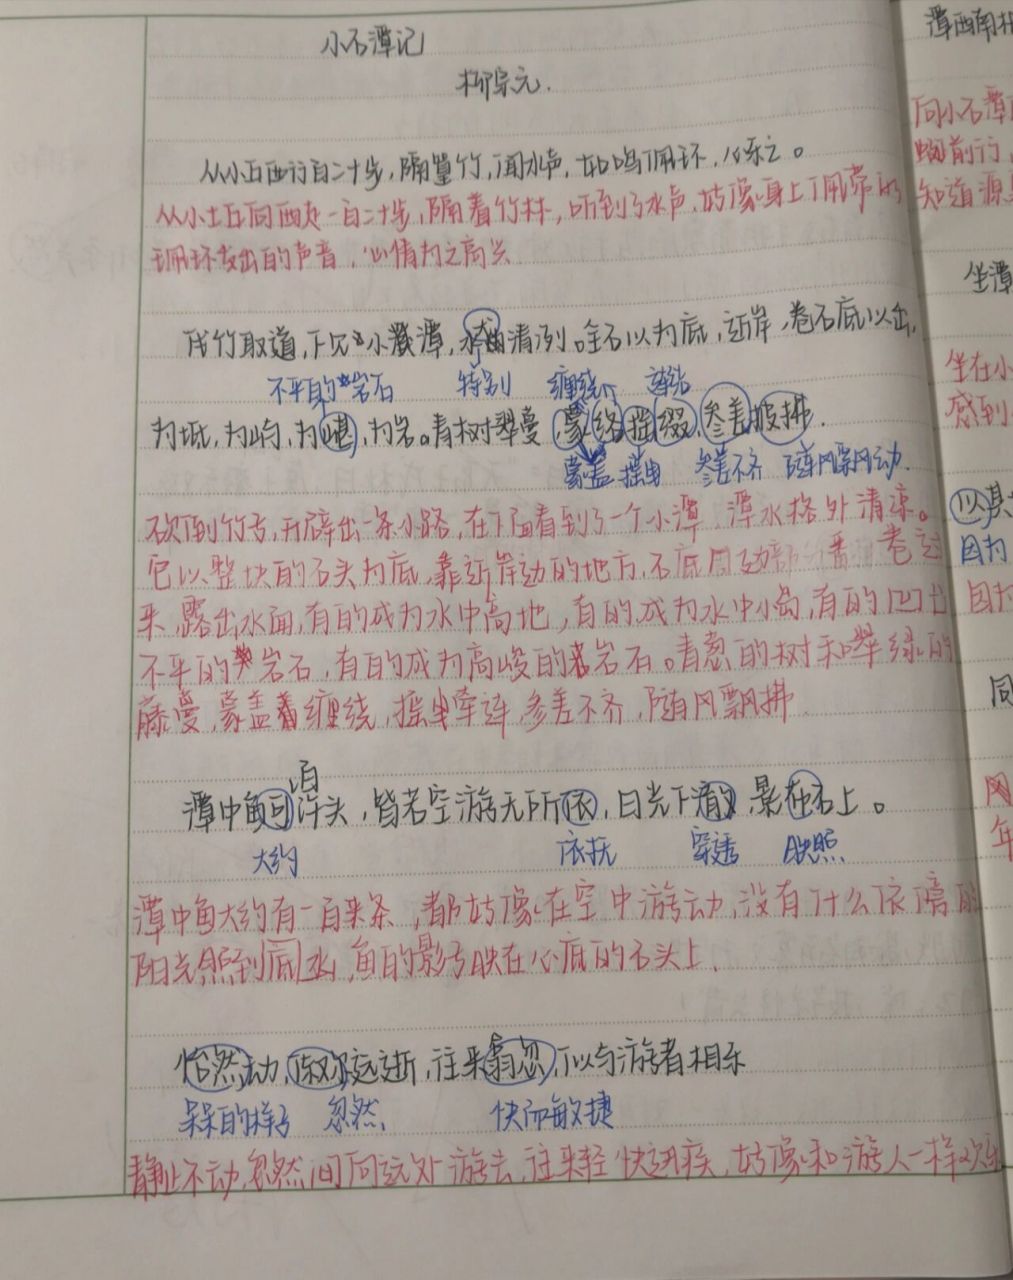 小石潭记
柳宗元.
从小丘西行百二十步,隔篁竹,闻水声,如鸣佩环,心乐之。
从小土丘向西走一百二十步,隔着竹林,听到了水声,好像身上佩带的
珮环发出的声音,心情为之高兴
伐竹取道,下见小潭,水尤清冽。全石以为底,近岸,卷石底以出,
不平的岩石 特别 缠绕 连结
为坻,为屿,为嵁,为岩。青树翠蔓,蒙络摇缀,参差披拂.
蒙盖 摇曳 参差不齐 随风飘动.
砍倒竹子,开辟出一条小路,在下面看到了一个小潭,潭水格外清凉。
它以整块的石头为底,靠近岸边的地方,石底周边部分翻卷过
来,露出水面,有的成为水中高地,有的成为水中小岛,有的凹凸
不平的岩石,有的成为高峻的岩石。青葱的树和翠绿的
藤蔓,蒙盖着缠绕,摇曳牵连,参差不齐,随风飘拂
潭中鱼可百许头,皆若空游无所依,日光下澈,影在石上。
大约 依托 穿透 映照
潭中鱼大约有一百来条,都好像在空中游动,没有什么依傍的
阳光照到底,鱼的影子映在底的石头上.
佁然动,俶尔远逝,往来翕忽,似与游者相乐
呆呆的样子 忽然 快而敏捷
静止不动,忽然间向远处游去,往来轻快迅疾,好像和游人一样欢乐
潭西南
向小石潭
前行,
知道源
坐潭
坐在小
感到
以其
因为
因为
同
年